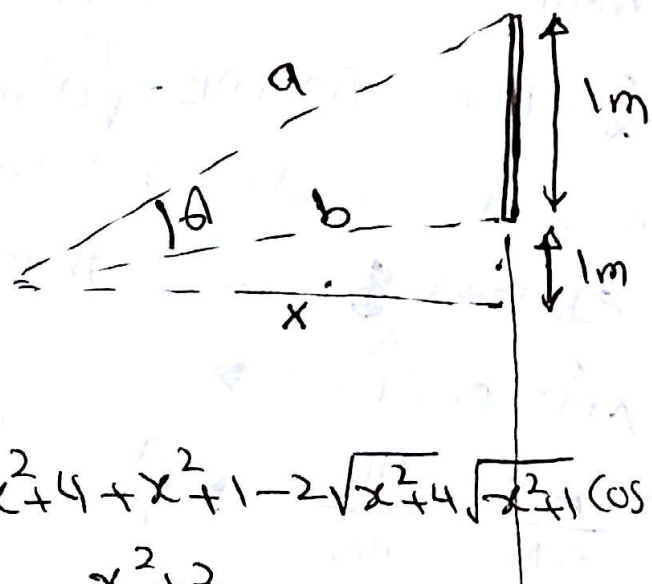 a
1m
θ
b
1m
x
x²+4+x²+1-2√x²+4 √x²+1 Cos
x²+2